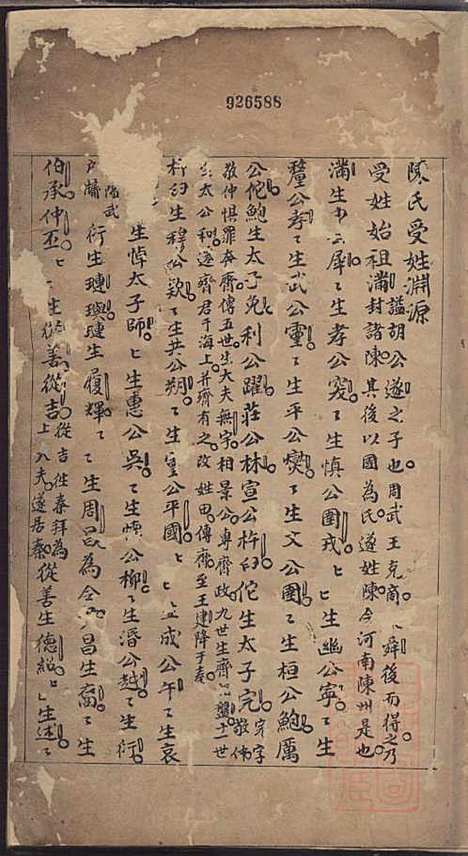 926588
陳氏受姓淵源
受姓始祖滿諡胡公遂之子也周武王克商求舜後而得之乃封諸陳其後以國為氏遂姓陳今河南陳州是也
滿生申公犀犀ヒ生孝公突ヒ生慎公圉戎ヒ生幽公寧ヒ生
釐公孝ヒ生武公靈ヒ生平公燮ヒ生文公圉ヒ生桓公鮑厲
公佗鮑生太子免利公躍莊公林宣公杵臼佗生太子完完字敬仲
敬仲懼罪奔齊傳五世生大夫無宇相景公專齊政九世生齊 盤十一世
生太公和遂齊君于海上并齊有之改姓田傳齊至王建降于秦
杵臼生穆公欵ヒ生共公朔ヒ生靈公平國ヒ生成公午ヒ生哀
生悼太子師ヒ生惠公吳ヒ生懷公柳ヒ生湣公越ヒ生衍
戶牖陽武 衍生璉璵璉生履輝ヒ生周 為令 昌生裔ヒ生
伯承仲丕ヒ生從善從吉從吉仕秦拜為上大夫遂居秦從善生德紹ヒ生述ヒ